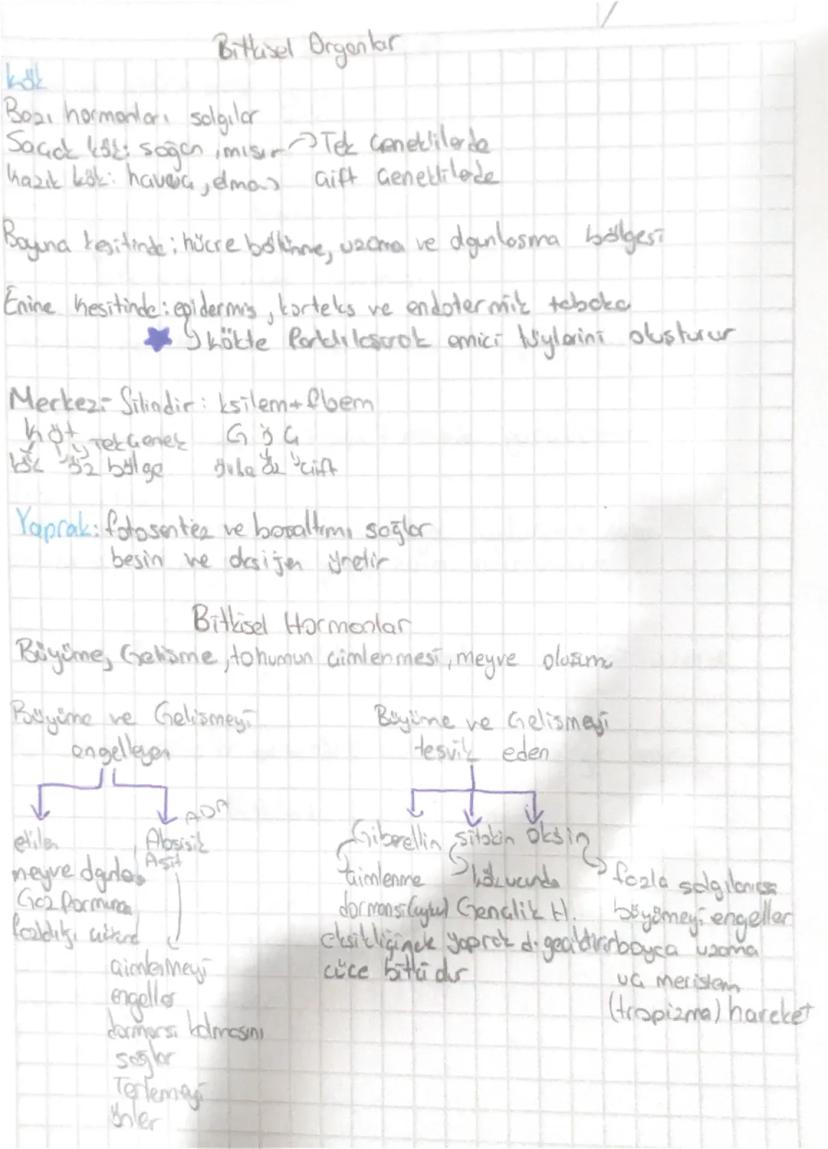 Bitkisel Organlar
Kök
Bazı hormonları salgılar
Saçak kök: soğan, mısır → Tek Çeneklilerde
kazık kök: havuç, elma → Çift Çeneklilerde
Boyuna kesitinde: hücre bölünme, uzama ve olgunlaşma bölgesi
Enine kesitinde: epidermis, korteks ve endotermik tabaka
kökte farklılaşarak emici tüylerini oluşturur
Merkezi Silindir: ksilem + floem
Tek Çenek
Yaprak: fotosentez ve boşaltımı sağlar
besin ve oksijen üretir
Bitkisel Hormonlar
Büyüme, Gelişme, tohumun çimlenmesi, meyve oluşumu
Büyüme ve Gelişmeyi engelleyen
Büyüme ve Gelişmeyi teşvik eden
etilen
meyve olgunlaş
Gaz formuna
Absisik Asit
çimlenmeyi
engeller
dormansi kalmasını
sağlar
Terlemeyi
önler
Giberellin
çimlenme
dormansi (uyku)
eksikliğinde
cüce bitkidir
sitokin
kök ucunda
Gençlik H.
yaprak d. geciktirir
oksin
fazla salgılanırsa
büyümeyi engeller
boyca uzama
uç meristem
(tropizma) hareket